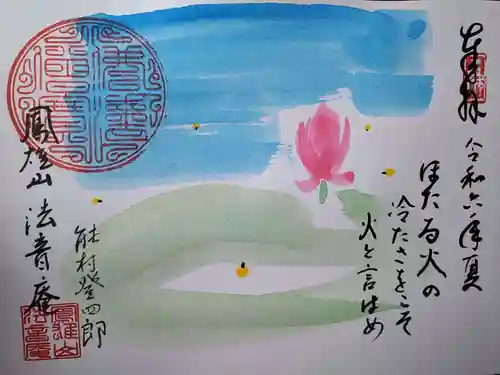 奉拝
令和六年夏
ほたる火の
冷たさをこそ
火と言はめ
能村登四郎
鳳雄山 法音庵